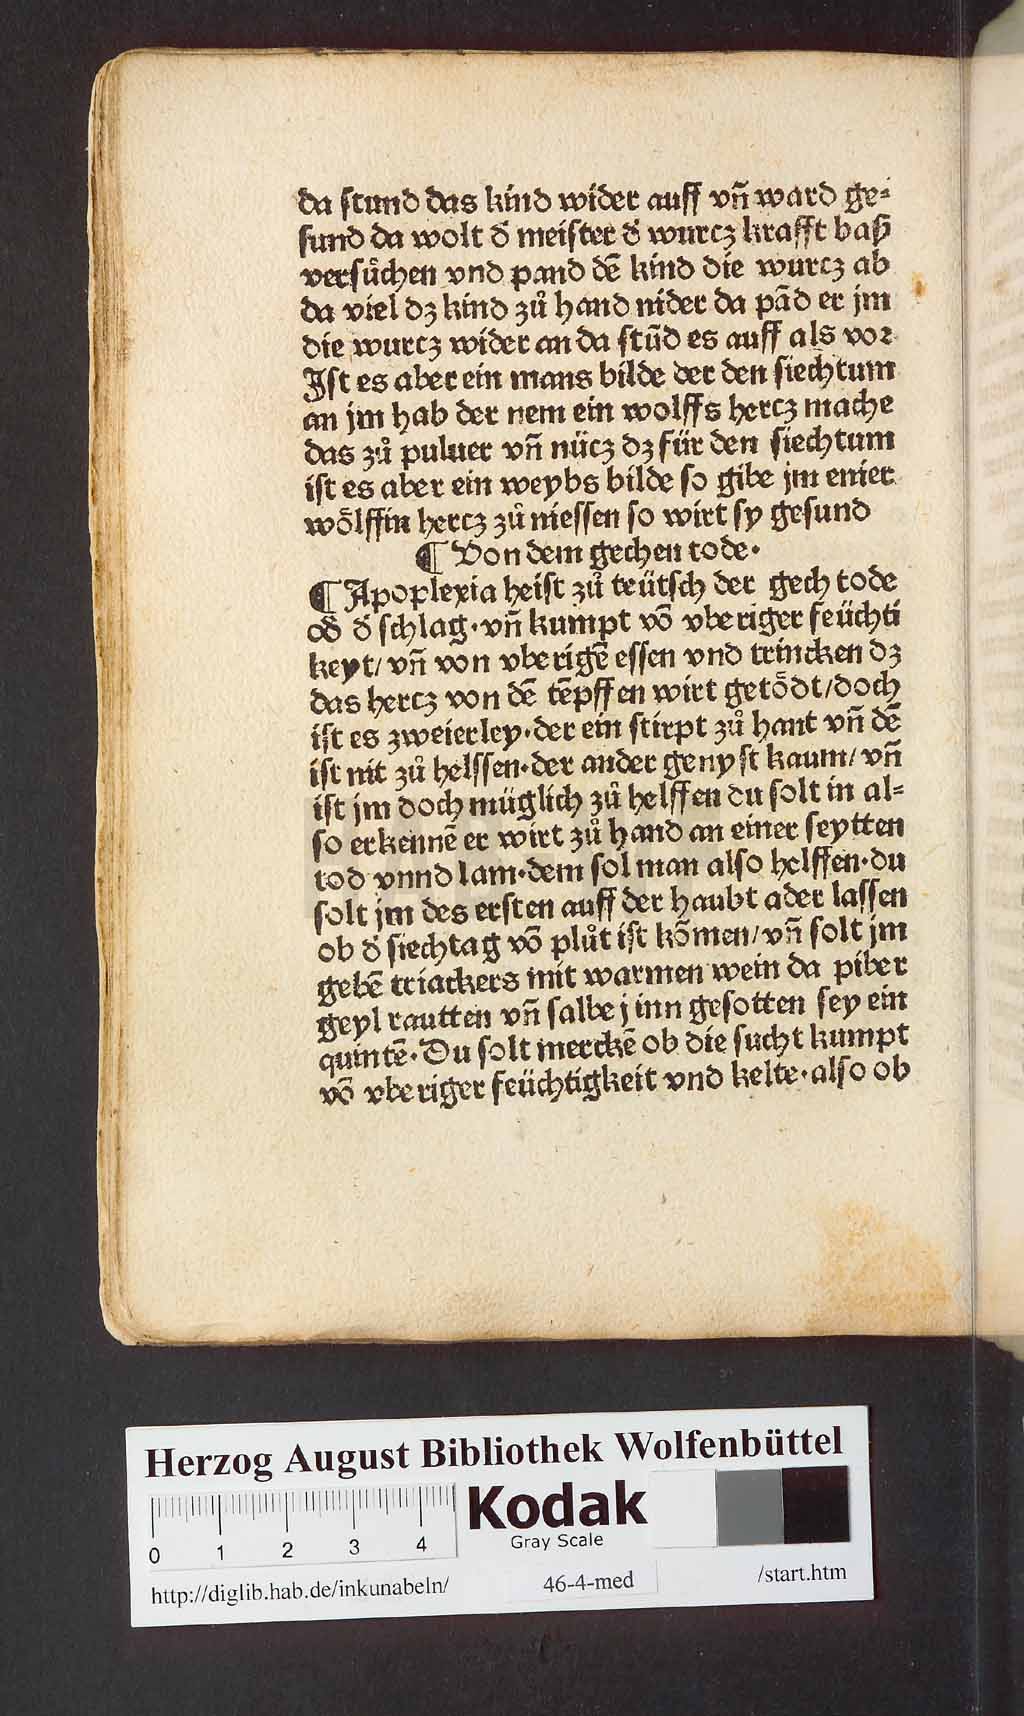 da stund das kind wider auff vñ ward ge⸗
sund da wolt d̕ meister d̕ wurcz krafft baß
versuͤchen vnd pand dē kind die wurcz ab
da viel dz kind zuͦ hand nider da pād er jm
die wurcz wider an da stūd es auff als vor
Jst es aber ein mans bilde der den siechtum
an jm hab der nem ein wolffs hercz mache
das zuͦ puluer vñ nücz dz für den siechtum
ist es aber ein weybs bilde so gibe jm enier
woͤlffin hercz zuͦ niessen so wirt sy gesund
¶ Von dem gechen tode·
¶ Apoplexia heist zuͦ teütsch der gech tode
od̕ d̕ schlag·vñ kumpt vō vberiger feüchti
keyt/ vñ von vberigē essen vnd trincken dz
das hercz von dē tēpffen wirt getoͤdt/doch
ist es zweierley·der ein stirpt zuͦ hant vñ dē
ist nit zuͦ helssen·der ander genyst kaum/ vñ
ist jm doch müglich zuͦ helffen du solt in al⸗
so erkennē er wirt zuͦ hand an einer seytten
tod vnnd lam·dem sol man also helffen·du
solt jm des ersten auff der haubt ader lassen
ob d̕ siechtag vō pluͦt ist kōmen/ vñ solt jm
gebē triackers mit warmen wein da piber
geyl rautten vñ salbe jinn gesotten sey ein
quintē·Du solt merckē ob die sucht kumpt
vō vberiger feüchtigkeit vnd kelte·also ob
Herzog August Bibliothek Wolfenbüttel
0 1 2 3 4
Kodak
Gray Scale
http://diglib.hab.de/inkunabeln/ 46-4-med /start.htm